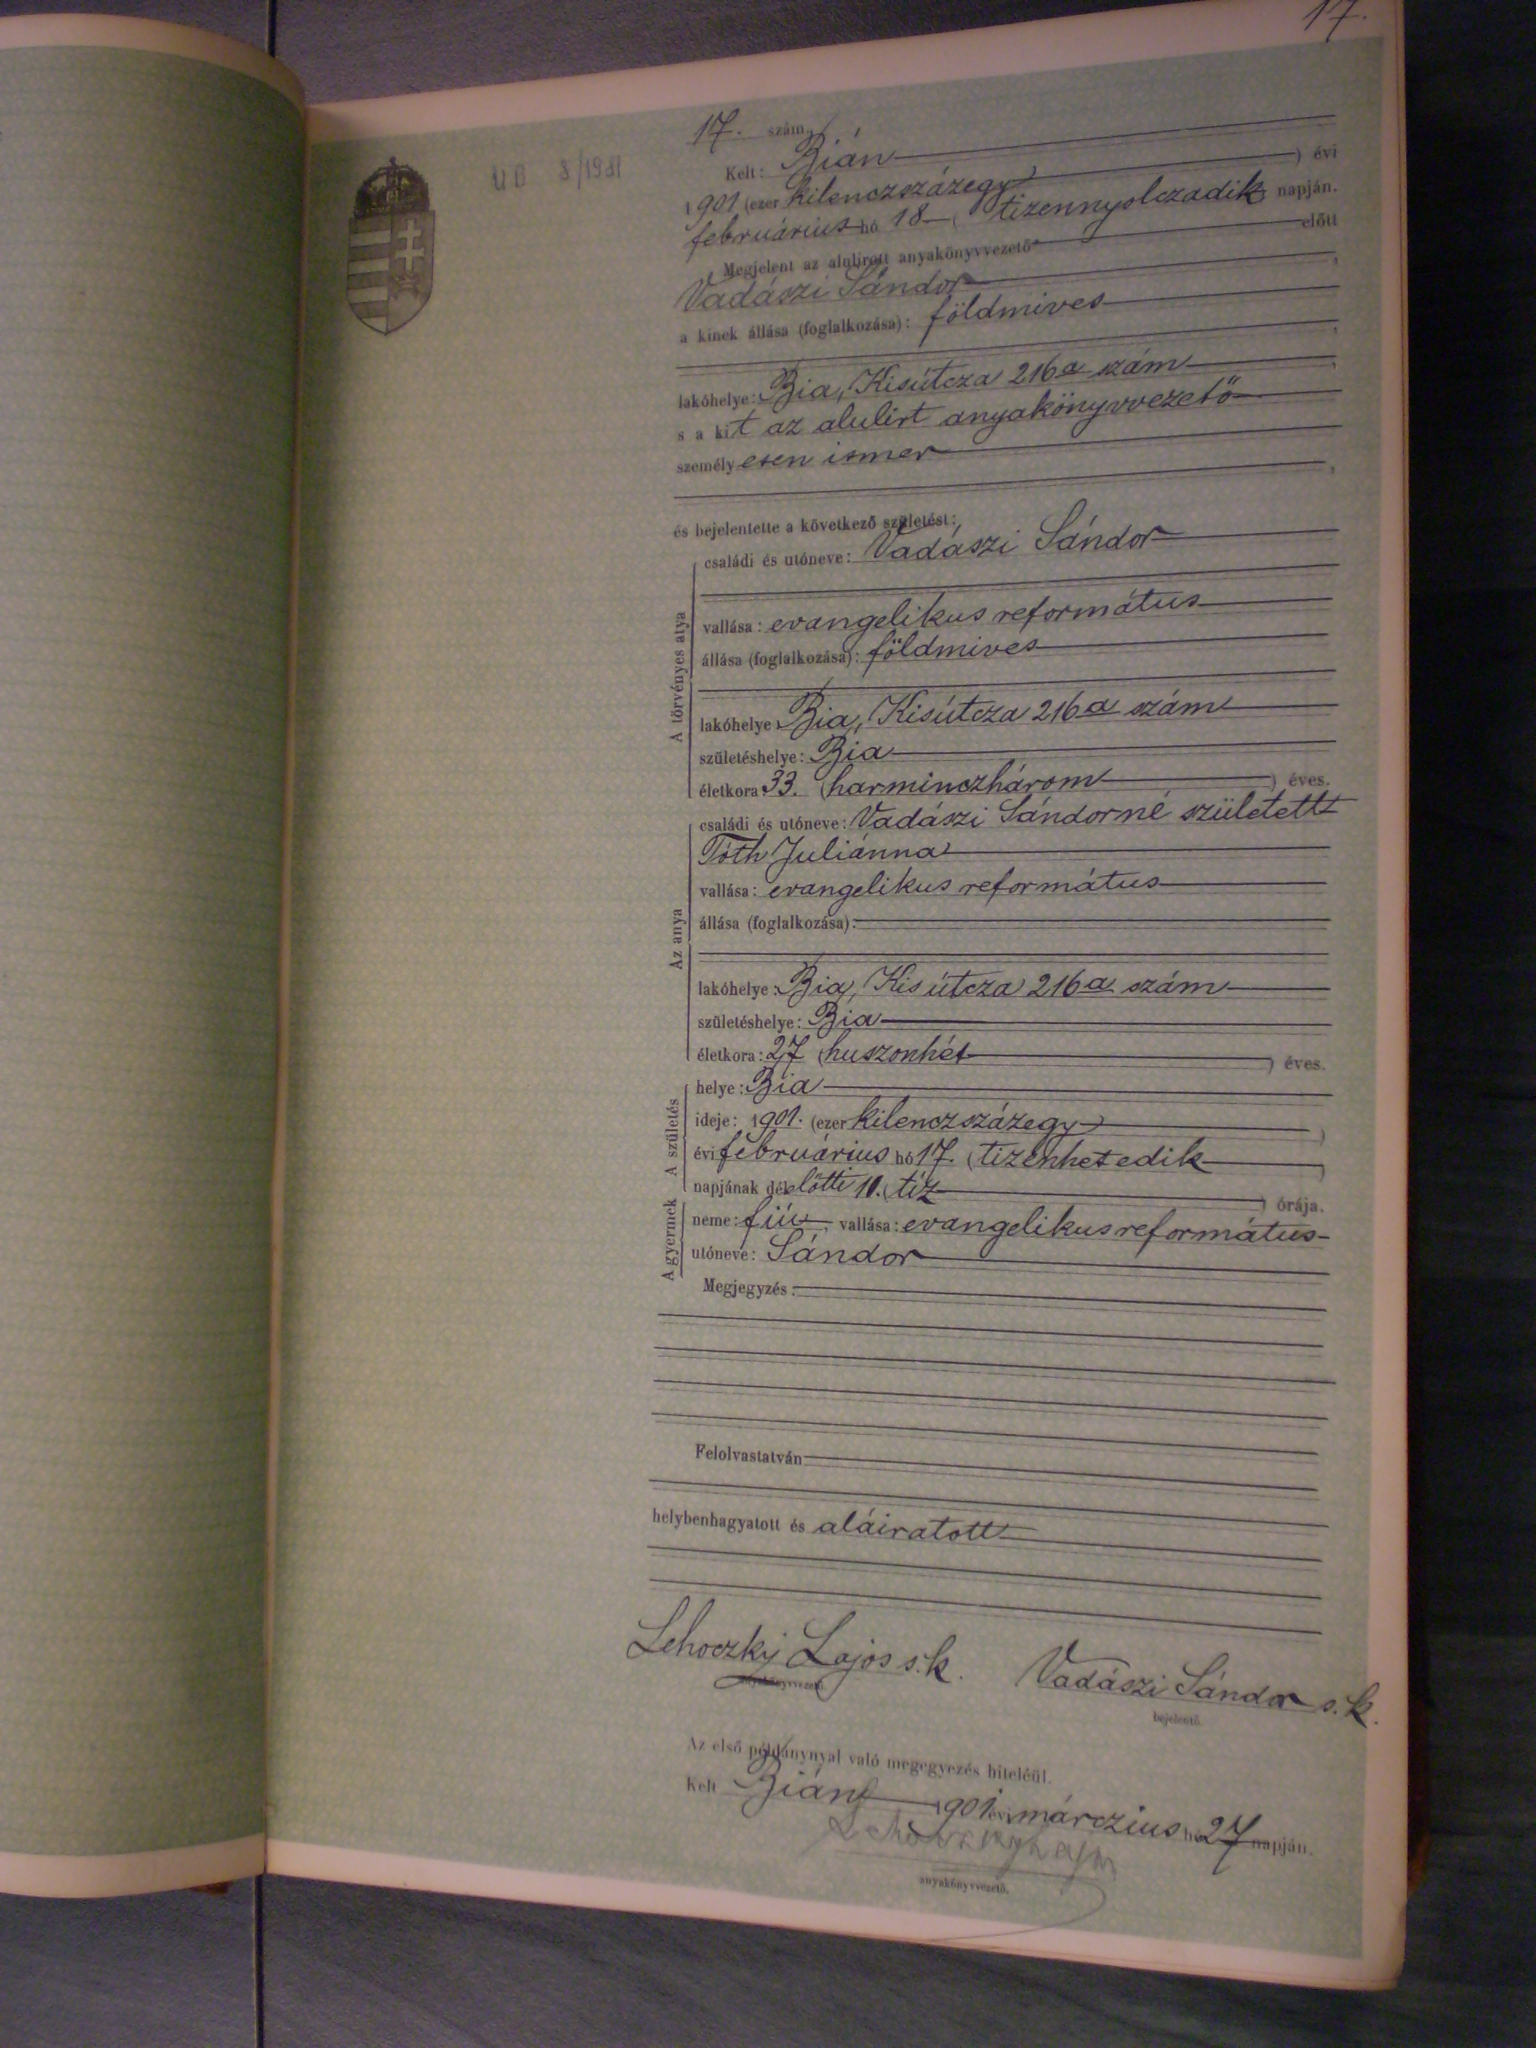 17.
17. szám.
UB 8/1981
Kelt: Bián
1901 (ezer kilenczszázegy) évi
februárius hó 18 (tizennyolczadik napján.
Megjelent az alulirott anyakönyvvezető előtt
Vadászi Sándor
a kinek állása (foglalkozása): földmives
lakóhelye: Bia, Kisútcza 216a szám
s a kit az alulirt anyakönyvvezető
személyesen ismer
és bejelentette a következő születést:
A törvényes atya
családi és utóneve: Vadászi Sándor
vallása: evangelikus református
állása (foglalkozása): földmives
lakóhelye: Bia, Kisútcza 216a szám
születéshelye: Bia
életkora: 33. (harminczhárom) éves.
Az anya
családi és utóneve: Vadászi Sándorné született
Tóth Juliánna
vallása: evangelikus református
állása (foglalkozása):
lakóhelye: Bia, Kis útcza 216a szám
születéshelye: Bia
életkora: 27 (huszonhét) éves.
A születés
helye: Bia
ideje: 1901. (ezer kilenczszázegy)
évi februárius hó 17. (tizenhetedik)
napjának délelőtti 10. (tíz) órája.
A gyermek
neme: fiú, vallása: evangelikus református
utóneve: Sándor
Megjegyzés:
Felolvastatván
helybenhagyatott és aláiratott
Lehoczky Lajos s.k. Vadászi Sándor s.k.
anyakönyvvezető. bejelentő.
Az első példánynyal való megegyezés hiteléül.
Kelt Bián 1901 évi márczius hó 27 napján.
anyakönyvvezető.